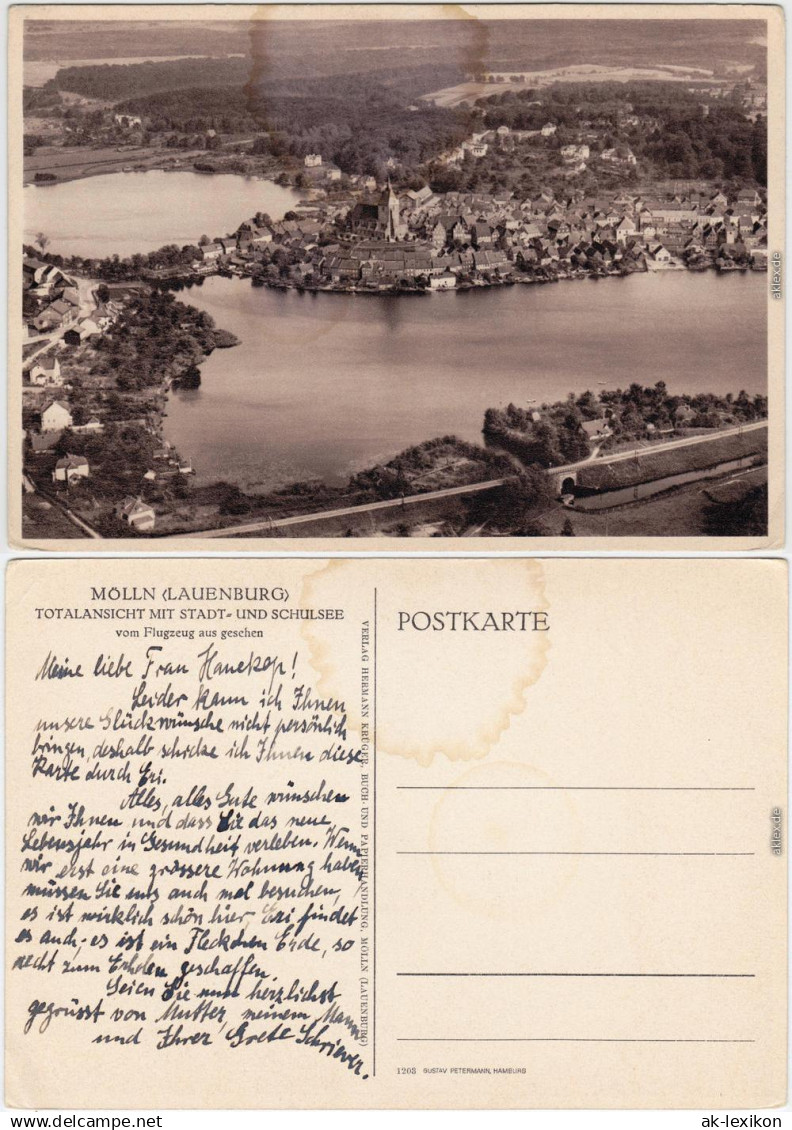 aklex.de
MÖLLN (LAUENBURG)
TOTALANSICHT MIT STADT- UND SCHULSEE
vom Flugzeug aus gesehen
Meine liebe Frau Hanekop!
Leider kann ich Ihnen
unsere Glückwünsche nicht persönlich
bringen, deshalb schicke ich Ihnen diese
Karte durch Eri.
Alles, alles Gute wünschen
wir Ihnen und dass Sie das neue
Lebensjahr in Gesundheit verleben. Wenn
wir erst eine grössere Wohnung haben
müssen Sie uns auch mal besuchen,
es ist wirklich schön hier, Eri findet
es auch; es ist ein Fleckchen Erde, so
recht zum Erholen geschaffen.
Seien Sie nun herzlichst
gegrüsst von Mutter, meinem Mann
und Ihrer Grete Schriever.
VERLAG HERMANN KRÜGER, BUCH- UND PAPIERHANDLUNG, MÖLLN (LAUENBURG)
POSTKARTE
aklex.de
1203 GUSTAV PETERMANN, HAMBURG
ak-lexikon